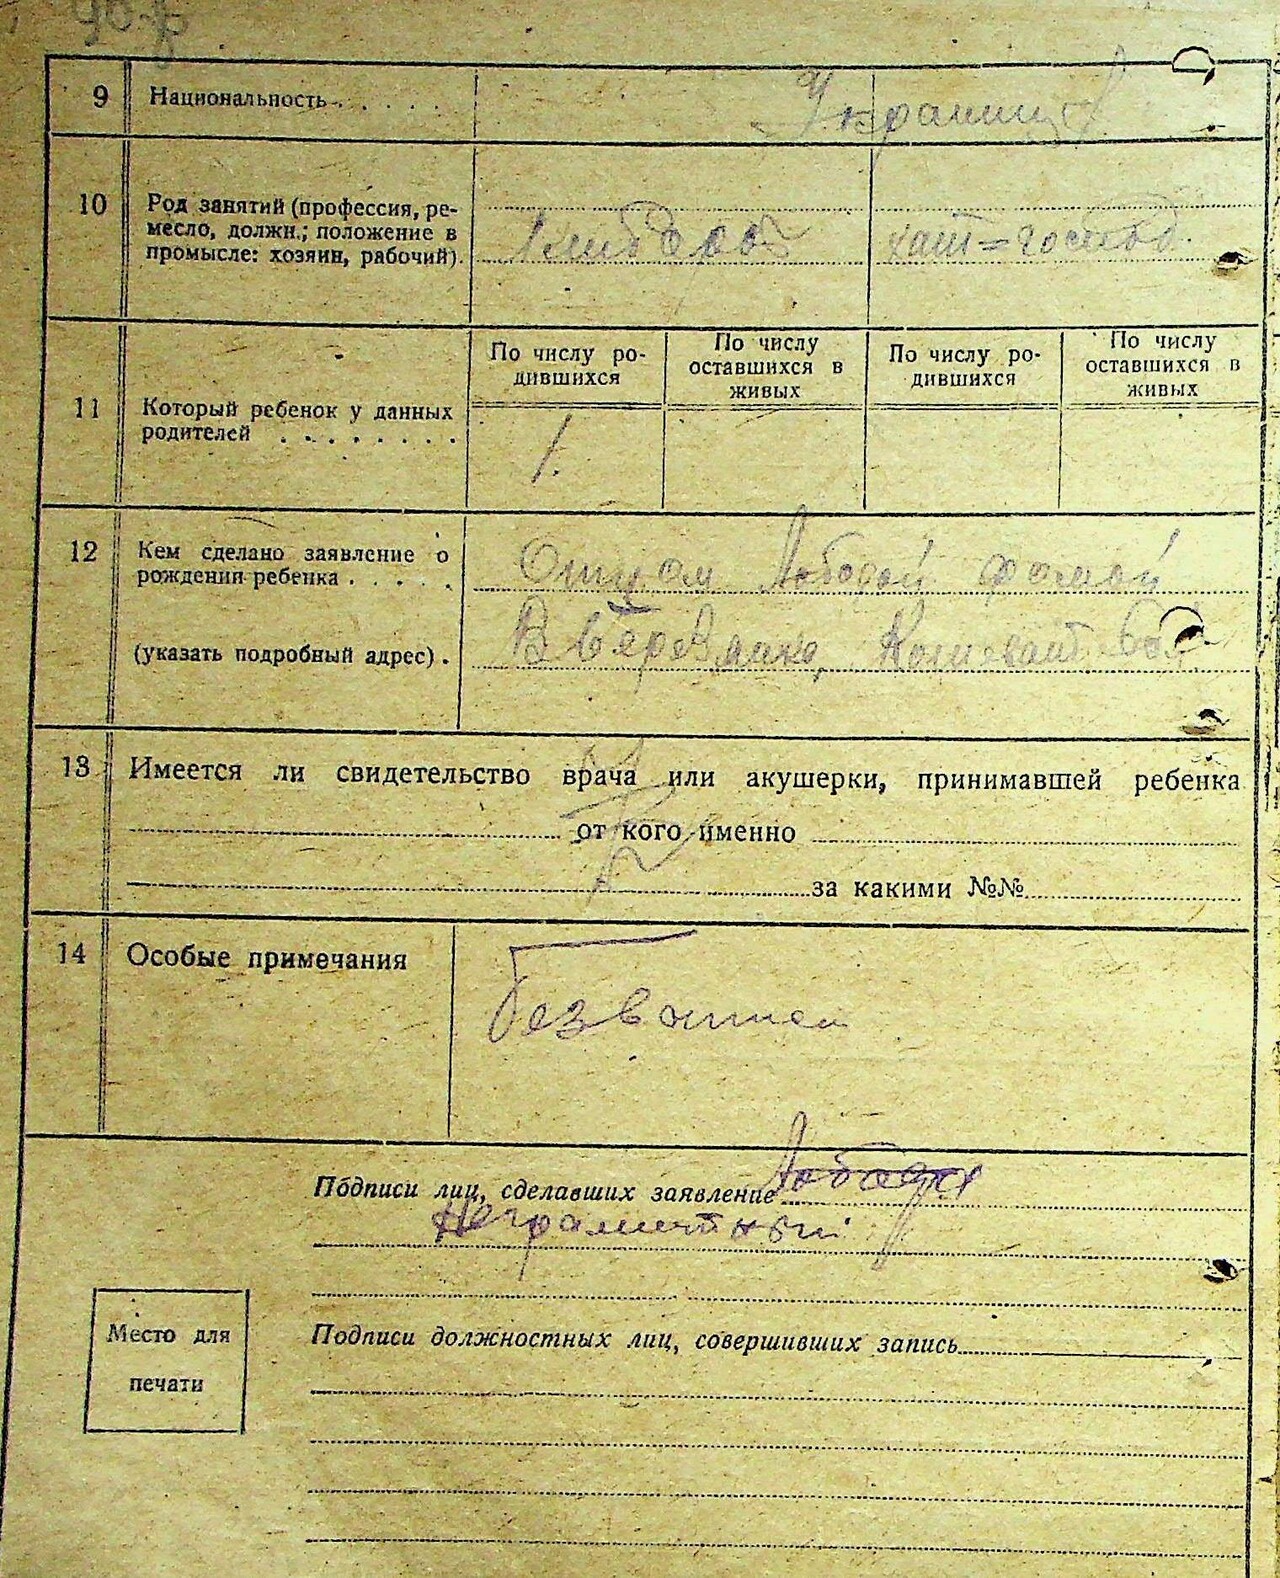 9 Национальность . . . . . Украинцы
10 Род занятий (профессия, ре-
месло, должн.; положение в
промысле: хозяин, рабочий).
Хлибороб
11 Который ребенок у данных
родителей . . . . . . . .
По числу ро-
дившихся
По числу
оставшихся в
живых
По числу ро-
дившихся
По числу
оставшихся в
живых
1.
12 Кем сделано заявление о
рождении ребенка . . . . .
(указать подробный адрес) .
Отцом Лободой Фомой
13 Имеется ли свидетельство врача или акушерки, принимавшей ребенка
от кого именно
за какими №№
14 Особые примечания
Подписи лиц, сделавших заявление Лобода
Неграмотный
Место для
печати
Подписи должностных лиц, совершивших запись